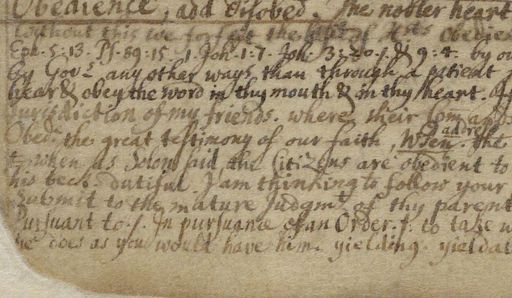 Obedience, add disobed. The nobler heart
without this we forfeit the of Obedien
Eph. 5:13. Ps. 89:15 1 Joh. 1:7. Joh. 3:20. & 9:4. by ou
by Govr. any other ways, than through a patient
hear & obey the word in thy mouth & in thy heart.
Jurisdiction of my friends. where their com
Obed. the great testimony of our faith, When the
address
when as Solon said the Citizens are obedient to
his beck. dutiful. I am thinking to follow your
submit to the mature Judgmt. of thy parent
Pursuant to. In pursuance of an Order. to take
he does as you would have him. yielding. yield